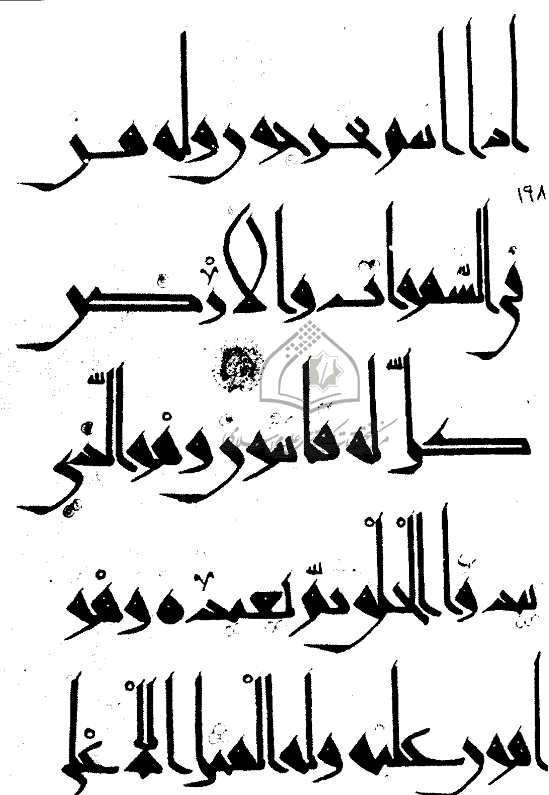 اذا انتم تخرجون وله من
١٩٨
في السّموات والارض
كلّ له قانتون وهو الّذي
يبدوا الخلق ثمّ يعيده وهو
اهون عليه وله المثل الاعلى